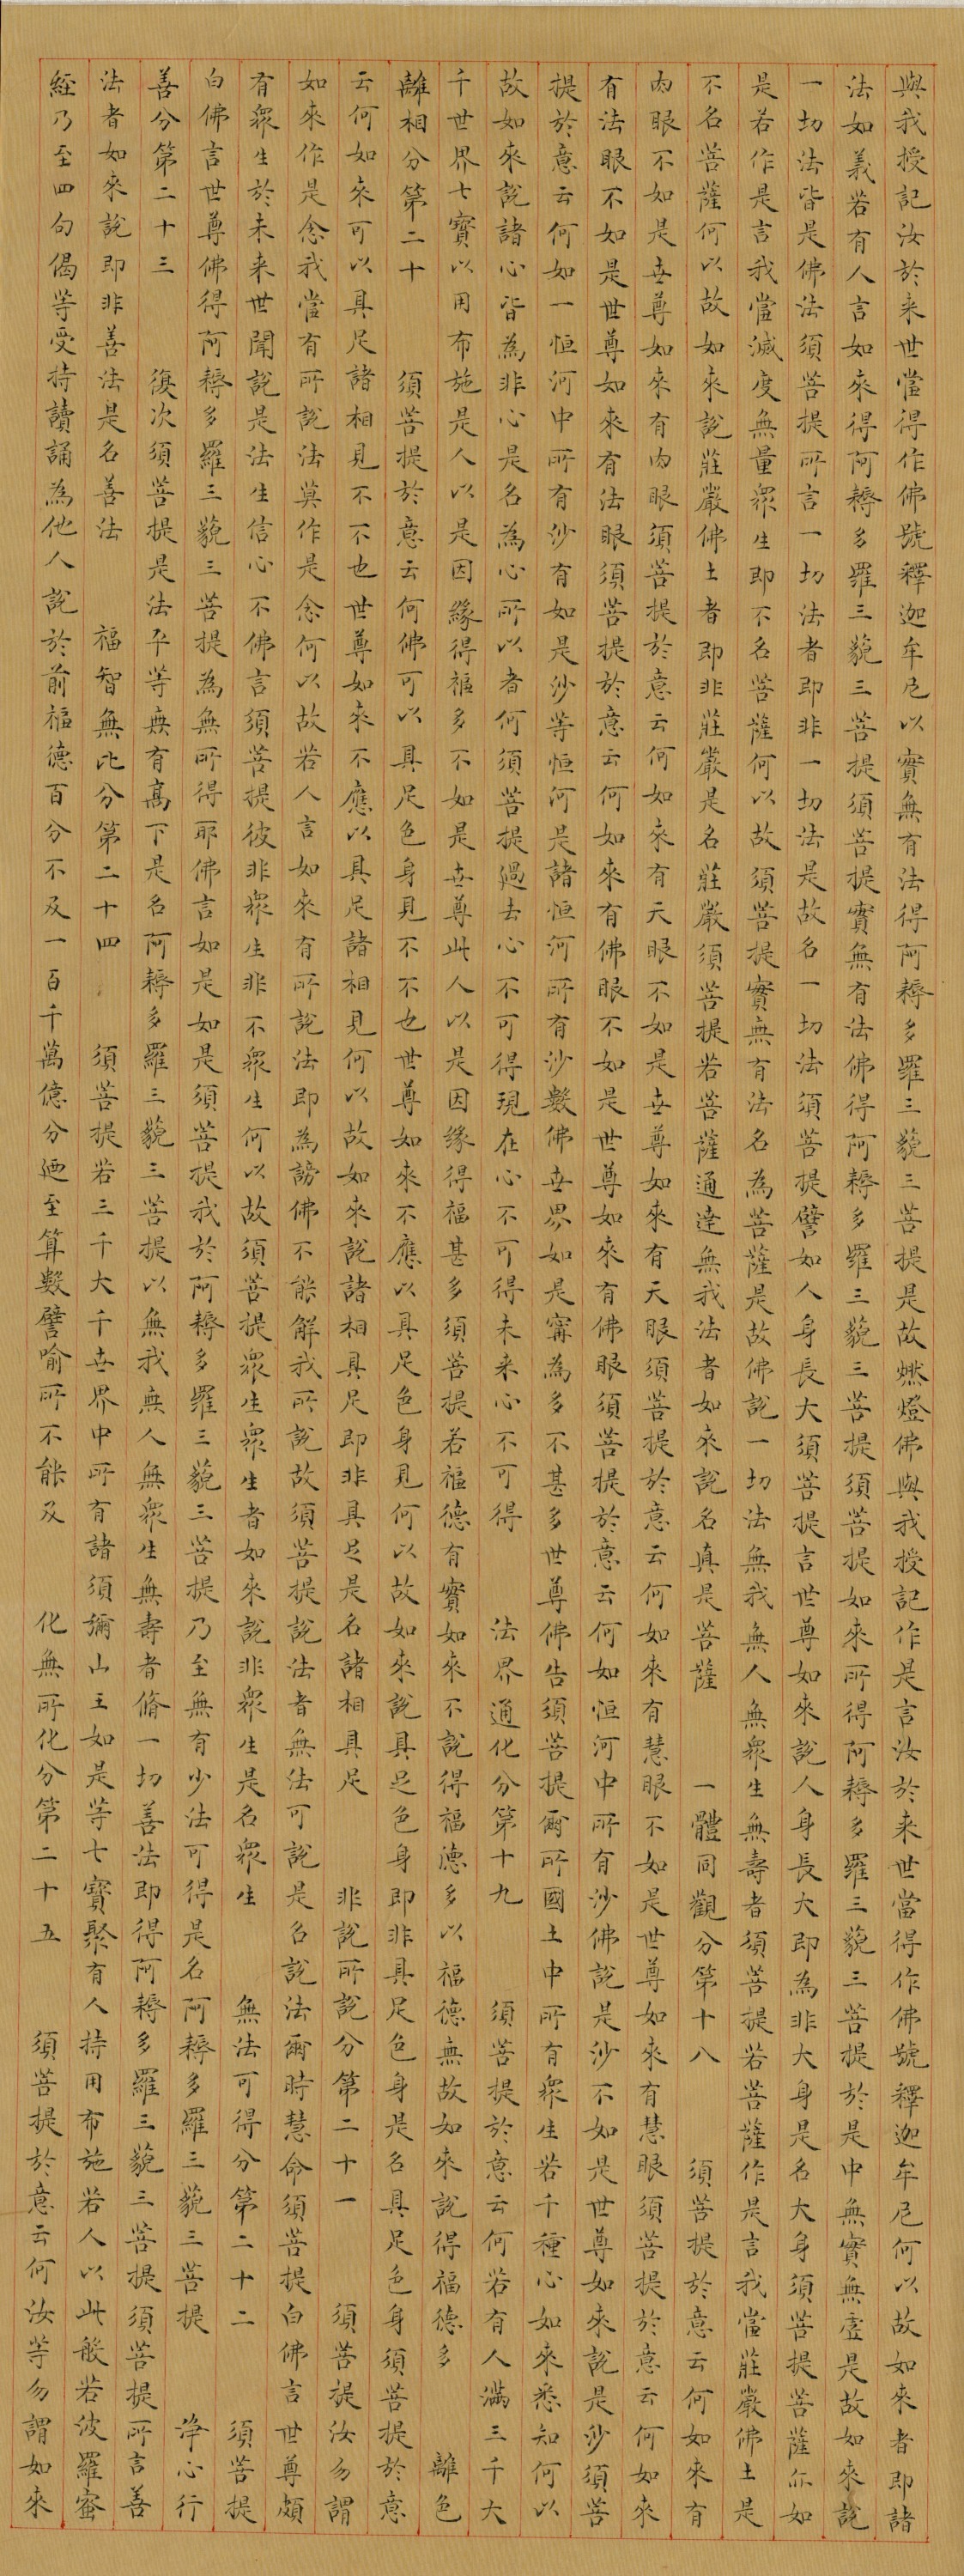 與我授記汝於来世當得作佛號釋迦牟尼以實無有法得阿耨多羅三藐三菩提是故燃燈佛與我授記作是言汝於来世當得作佛號釋迦牟尼何以故如來者即諸
法如義若有人言如來得阿耨多羅三藐三菩提須菩提實無有法佛得阿耨多羅三藐三菩提須菩提如來所得阿耨多羅三藐三菩提於是中無實無虛是故如來說
一切法皆是佛法須菩提所言一切法者即非一切法是故名一切法須菩提譬如人身長大須菩提言世尊如來說人身長大即為非大身是名大身須菩提菩薩亦如
是若作是言我當滅度無量衆生即不名菩薩何以故須菩提實無有法名為菩薩是故佛說一切法無我無人無衆生無壽者須菩提若菩薩作是言我當莊嚴佛土是
不名菩薩何以故如來說莊嚴佛土者即非莊嚴是名莊嚴須菩提若菩薩通達無我法者如來說名真是菩薩 一體同觀分第十八 須菩提於意云何如來有
肉眼不如是世尊如來有肉眼須菩提於意云何如來有天眼不如是世尊如來有天眼須菩提於意云何如來有慧眼不如是世尊如來有慧眼須菩提於意云何如來
有法眼不如是世尊如來有法眼須菩提於意云何如來有佛眼不如是世尊如來有佛眼須菩提於意云何如恒河中所有沙佛說是沙不如是世尊如來說是沙須菩
提於意云何如一恒河中所有沙有如是沙等恒河是諸恒河所有沙數佛世界如是寗為多不甚多世尊佛告須菩提爾所國土中所有衆生若干種心如來悉知何以
故如來說諸心皆為非心是名為心所以者何須菩提過去心不可得現在心不可得未来心不可得 法界通化分第十九 須菩提於意云何若有人滿三千大
千世界七寶以用布施是人以是因緣得福多不如是世尊此人以是因緣得福甚多須菩提若福德有實如來不說得福德多以福德無故如來說得福德多 離色
離相分第二十 須菩提於意云何佛可以具足色身見不不也世尊如來不應以具足色身見何以故如來說具足色身即非具足色身是名具足色身須菩提於意
云何如來可以具足諸相見不不也世尊如來不應以具足諸相見何以故如來說諸相具足即非具足是名諸相具足 非說所說分第二十一 須菩提汝勿謂
如來作是念我當有所說法莫作是念何以故若人言如來有所說法即為謗佛不能解我所說故須菩提說法者無法可說是名說法爾時慧命須菩提白佛言世尊頗
有衆生於未来世聞說是法生信心不佛言須菩提彼非衆生非不衆生何以故須菩提衆生衆生者如來說非衆生是名衆生 無法可得分第二十二 須菩提
白佛言世尊佛得阿耨多羅三藐三菩提為無所得耶佛言如是如是須菩提我於阿耨多羅三藐三菩提乃至無有少法可得是名阿耨多羅三藐三菩提 淨心行
善分第二十三 復次須菩提是法平等無有高下是名阿耨多羅三藐三菩提以無我無人無衆生無壽者脩一切善法即得阿耨多羅三藐三菩提須菩提所言善
法者如來說即非善法是名善法 福智無比分第二十四 須菩提若三千大千世界中所有諸須彌山王如是等七寶聚有人持用布施若人以此般若波羅蜜
經乃至四句偈等受持讀誦為他人說於前福德百分不及一百千萬億分廼至算數譬喻所不能及 化無所化分第二十五 須菩提於意云何汝等勿謂如來